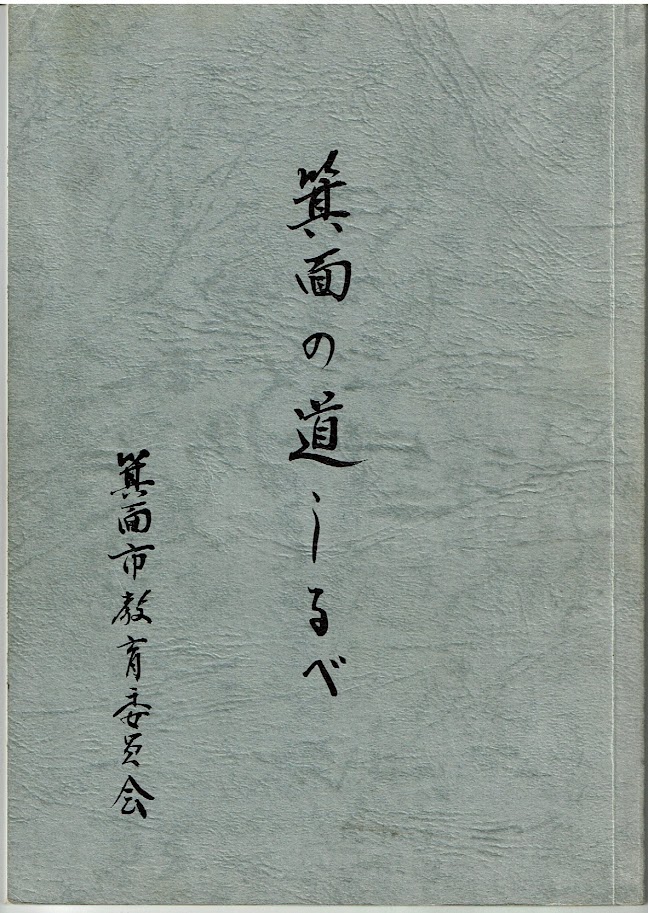 箕面の道しるべ
箕面市教育委員会